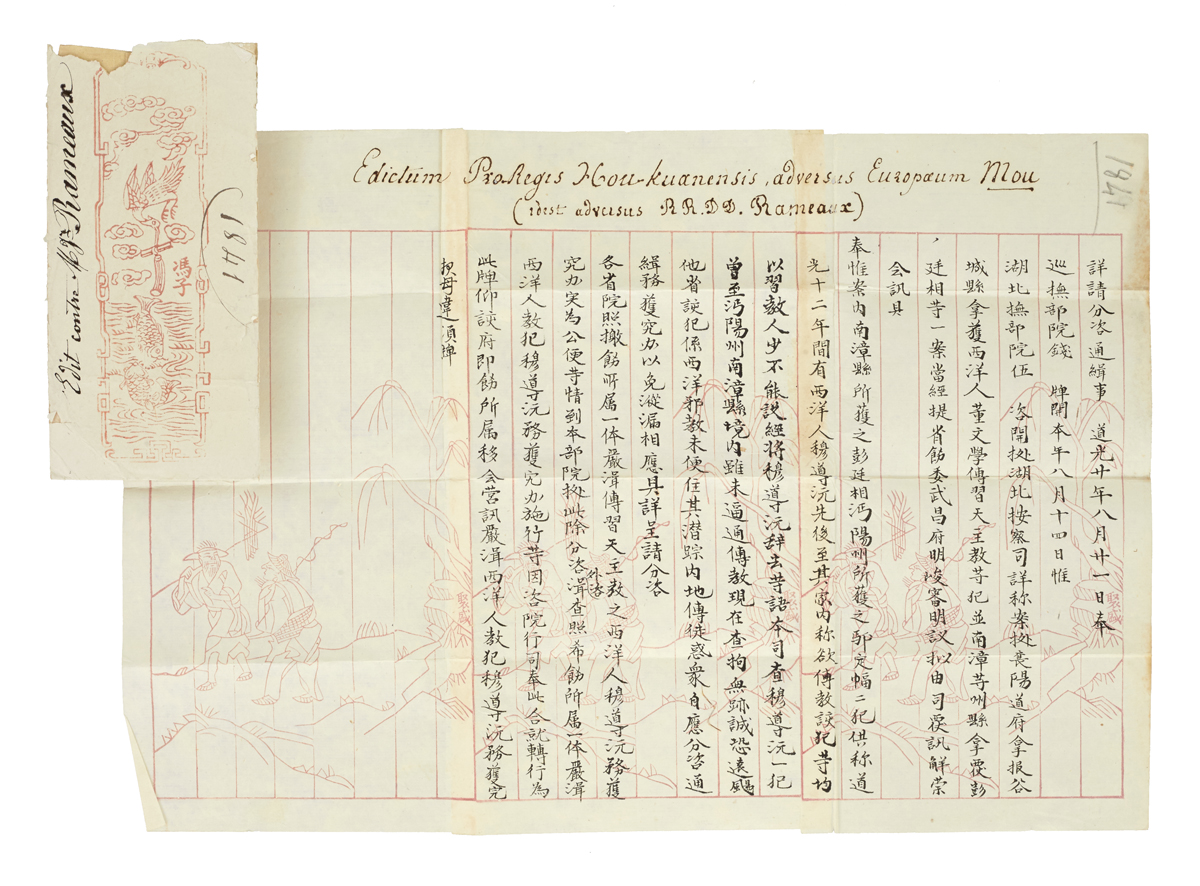 Edit contre Mgr Rameaux
1481
馮子
Edictum ProRegis Hou-kuanensis, adversus Europæum Mou
(idest adversus RR.DD. Rameaux)
1481
詳請分咨通緝事 道光廿年八月廿一日奉
巡撫部院錢 牌開本年八月十四日惟
湖北撫部院伍 咨開据湖北按察司詳称案据襄陽道府拿报谷
城縣拿獲西洋人董文學傳習天主教等犯並南漳等州縣拿獲彭
廷相等一案當經提省飭委武昌府明峻審明議拟由司覆訊解崇
会訊具
奉惟案内南漳縣所獲之彭廷相沔陽州所獲之鄢定幅二犯供称道
光十二年間有西洋人穆導沅先後至其家内称欲傳教該犯等均
以習教人少不能説經將穆導沅辞去等語本司查穆導沅一犯
曾至沔陽州南漳縣境内雖未逼通傳教現在查拘無跡誠恐遠颺
他省該犯係西洋邪教未便任其潜踪内地傳徒惑衆自應分咨通
緝務獲究办以免漇漏相應具詳呈請分咨
各省院照撤飭所属一体嚴渱傳習天主教之西洋人穆導沅務獲
外咨
究办实為公便等情到本部院据此除分咨渱查照希飭所属一体嚴渱
西洋人教犯穆導沅務獲究办施行等因咨院行司奉此合就轉行為
此牌仰該府即飭所属移会营訊嚴渱西洋人教犯穆導沅務獲究
拟毋違須牌
聚盛
聚盛